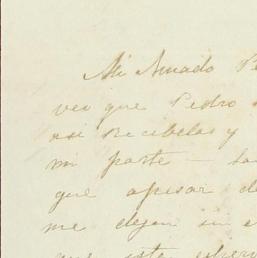 Mi Amado Pe
veo que Pedro
asi recibelas y
mi parte —
que apesar de
me dejen sin e
que este